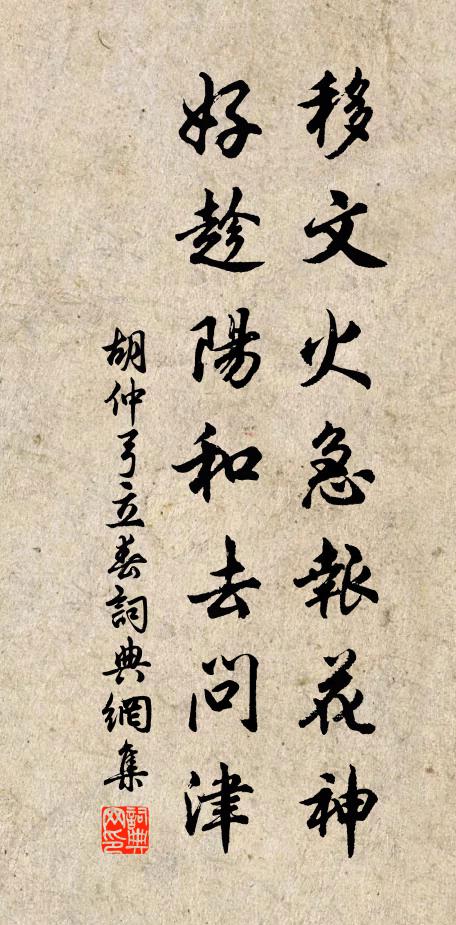 移文火急報花神
好趁陽和去問津
胡仲弓立春詞典網集
詞典網印